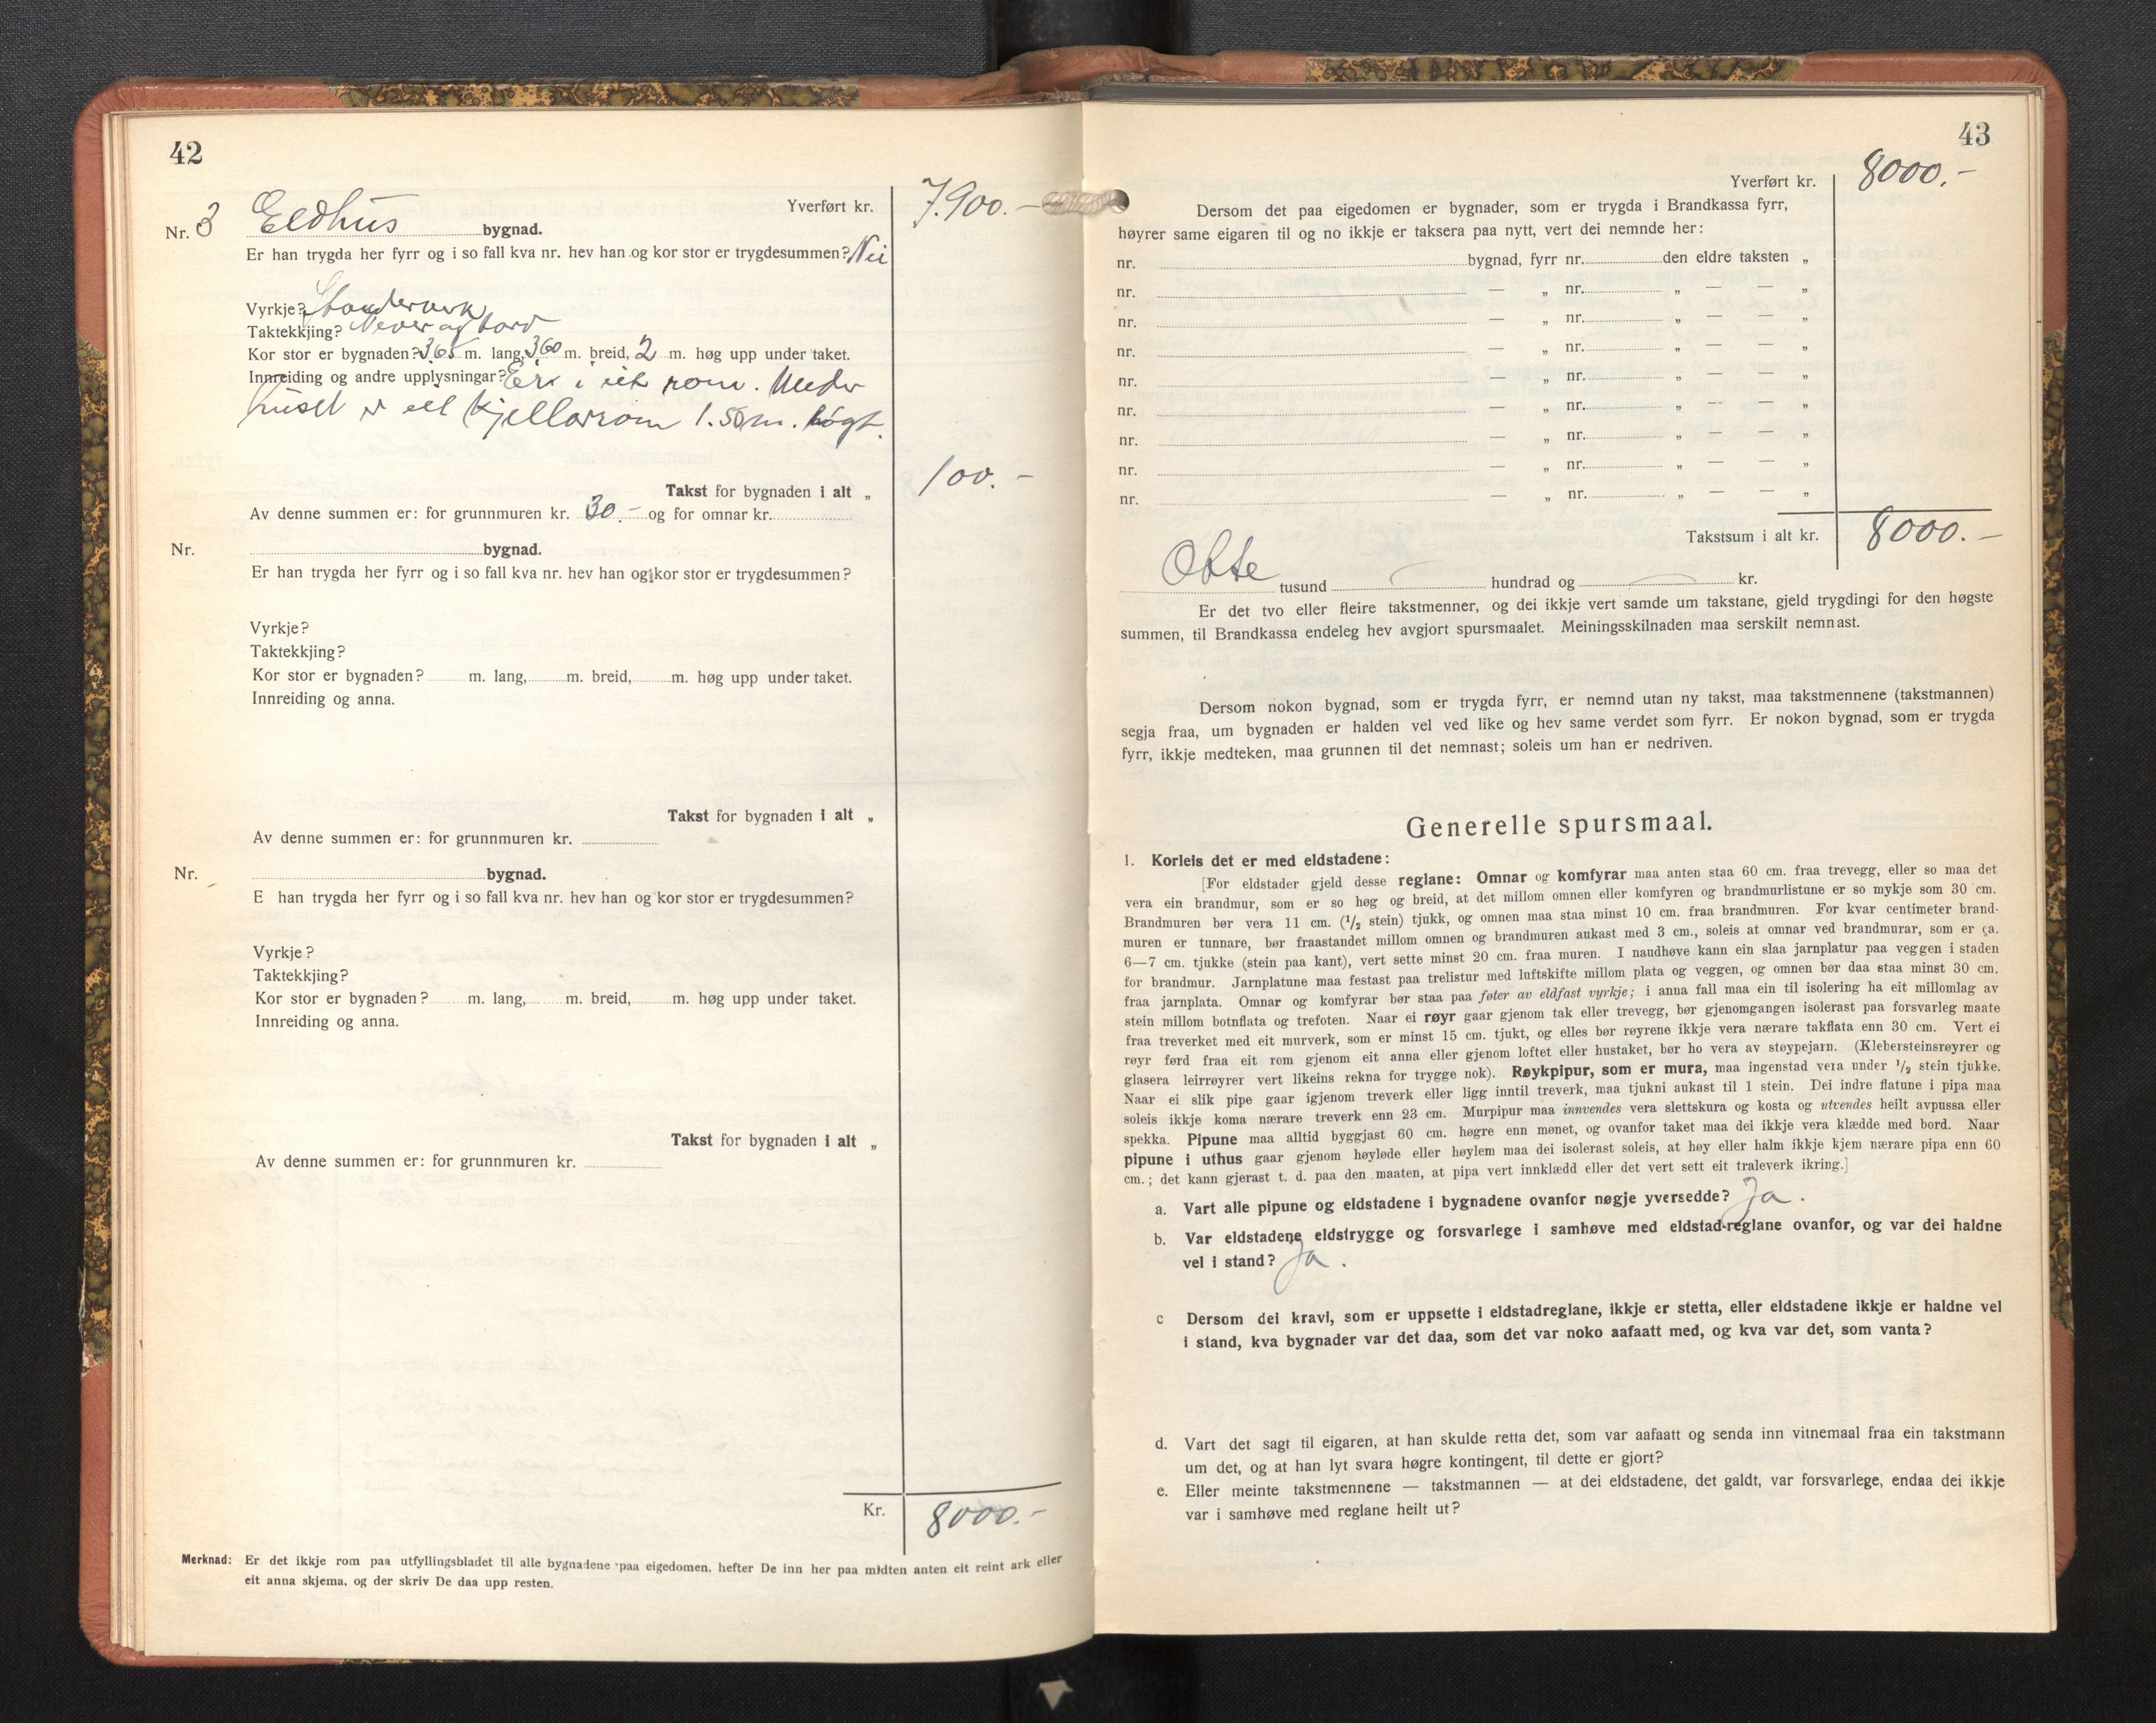 42
Yverført kr. 7.900.-
Nr. 3 Eldhus bygnad.
Er han trygda her fyrr og i so fall kva nr. hev han og kor stor er trygdesummen? Nei
Vyrkje? Standerverk
Taktekkjing? Never og tord
Kor stor er bygnaden? 3,65 m. lang, 3,60 m. breid, 2 m. høg upp under taket.
Innreiding og andre upplysningar? Er i eit rom. Under
huset er eit kjellarrom 1.50 m. høgt.
Takst for bygnaden i alt „ 100.-
Av denne summen er: for grunnmuren kr. 30.- og for omnar kr.
Nr. bygnad.
Er han trygda her fyrr og i so fall kva nr. hev han og kor stor er trygdesummen?
Vyrkje?
Taktekkjing?
Kor stor er bygnaden? m. lang, m. breid, m. høg upp under taket.
Innreiding og anna.
Takst for bygnaden i alt „
Av denne summen er: for grunnmuren kr.
Nr. bygnad.
E han trygda her fyrr og i so fall kva nr. hev han og kor stor er trygdesummen?
Vyrkje?
Taktekkjing?
Kor stor er bygnaden? m. lang, m. breid, m. høg upp under taket.
Innreiding og anna.
Takst for bygnaden i alt „
Av denne summen er: for grunnmuren kr.
Kr. 8000.-
Merknad: Er det ikkje rom paa utfyllingsbladet til alle bygnadene paa eigedomen, hefter De inn her paa midten anten eit reint ark eller
eit anna skjema, og der skriv De daa upp resten.
43
Yverført kr. 8000.-
Dersom det paa eigedomen er bygnader, som er trygda i Brandkassa fyrr,
høyrer same eigaren til og no ikkje er taksera paa nytt, vert dei nemnde her:
nr. bygnad, fyrr nr. den eldre taksten „
nr. — „ nr. „ — — „
nr. — „ nr. „ — — „
nr. — „ nr. „ — — „
nr. — „ nr. „ — — „
nr. — „ nr. „ — — „
nr. — „ nr. „ — — „
nr. — „ nr. „ — — „
nr. — „ nr. „ — — „
Takstsum i alt kr. 8000.-
Otte tusund — hundrad og — kr.
Er det tvo eller fleire takstmenner, og dei ikkje vert samde um takstane, gjeld trygdingi for den høgste
summen, til Brandkassa endeleg hev avgjort spursmaalet. Meiningsskilnaden maa serskilt nemnast.
Dersom nokon bygnad, som er trygda fyrr, er nemnd utan ny takst, maa takstmennene (takstmannen)
segja fraa, um bygnaden er halden vel ved like og hev same verdet som fyrr. Er nokon bygnad, som er trygda
fyrr, ikkje medteken, maa grunnen til det nemnast; soleis um han er nedriven.
Generelle spursmaal.
1. Korleis det er med eldstadene:
[For eldstader gjeld desse reglane: Omnar og komfyrar maa anten staa 60 cm. fraa trevegg, eller so maa det
vera ein brandmur, som er so høg og breid, at det millom omnen eller komfyren og brandmurlistune er so mykje som 30 cm.
Brandmuren bør vera 11 cm. (1/2 stein) tjukk, og omnen maa staa minst 10 cm. fraa brandmuren. For kvar centimeter brand-
muren er tunnare, bør fraastandet millom omnen og brandmuren aukast med 3 cm., soleis at omnar ved brandmurar, som er ca.
6—7 cm. tjukke (stein paa kant), vert sette minst 20 cm. fraa muren. I naudhøve kann ein slaa jarnplatur paa veggen i staden
for brandmur. Jarnplatune maa festast paa trelistur med luftskifte millom plata og veggen, og omnen bør daa staa minst 30 cm.
fraa jarnplata. Omnar og komfyrar bør staa paa føter av eldfast vyrkje; i anna fall maa ein til isolering ha eit millomlag av
stein millom botnflata og trefoten. Naar ei røyr gaar gjenom tak eller trevegg, bør gjenomgangen isolerast paa forsvarleg maate
fraa treverket med eit murverk, som er minst 15 cm. tjukt, og elles bør røyrene ikkje vera nærare takflata enn 30 cm. Vert ei
røyr førd fraa eit rom gjenom eit anna eller gjenom loftet eller hustaket, bør ho vera av støypejarn. (Klebersteinsrøyrer og
glasera leirrøyrer vert likeins rekna for trygge nok). Røykpipur, som er mura, maa ingenstad vera under 1/2 stein tjukke.
Naar ei slik pipe gaar igjenom treverk eller ligg inntil treverk, maa tjukni aukast til 1 stein. Dei indre flatune i pipa maa
soleis ikkje koma nærare treverk enn 23 cm. Murpipur maa innvendes vera slettskura og kosta og utvendes heilt avpussa eller
spekka. Pipune maa alltid byggjast 60 cm. høgre enn mønet, og ovanfor taket maa dei ikkje vera klædde med bord. Naar
pipune i uthus gaar gjenom høyløde eller høylem maa dei isolerast soleis, at høy eller halm ikkje kjem nærare pipa enn 60
cm.; det kann gjerast t. d. paa den maaten, at pipa vert innklædd eller det vert sett eit traleverk ikring.]
a. Vart alle pipune og eldstadene i bygnadene ovanfor nøgje yversedde? Ja.
b. Var eldstadene eldstrygge og forsvarlege i samhøve med eldstad-reglane ovanfor, og var dei haldne
vel i stand? Ja.
c Dersom dei kravi, som er uppsette i eldstadreglane, ikkje er stetta, eller eldstadene ikkje er haldne vel
i stand, kva bygnader var det daa, som det var noko aafaatt med, og kva var det, som vanta?
d. Vart det sagt til eigaren, at han skulde retta det, som var aafaatt og senda inn vitnemaal fraa ein takstmann
um det, og at han lyt svara høgre kontingent, til dette er gjort?
e. Eller meinte takstmennene — takstmannen — at dei eldstadene, det galdt, var forsvarlege, endaa dei ikkje
var i samhøve med reglane heilt ut?